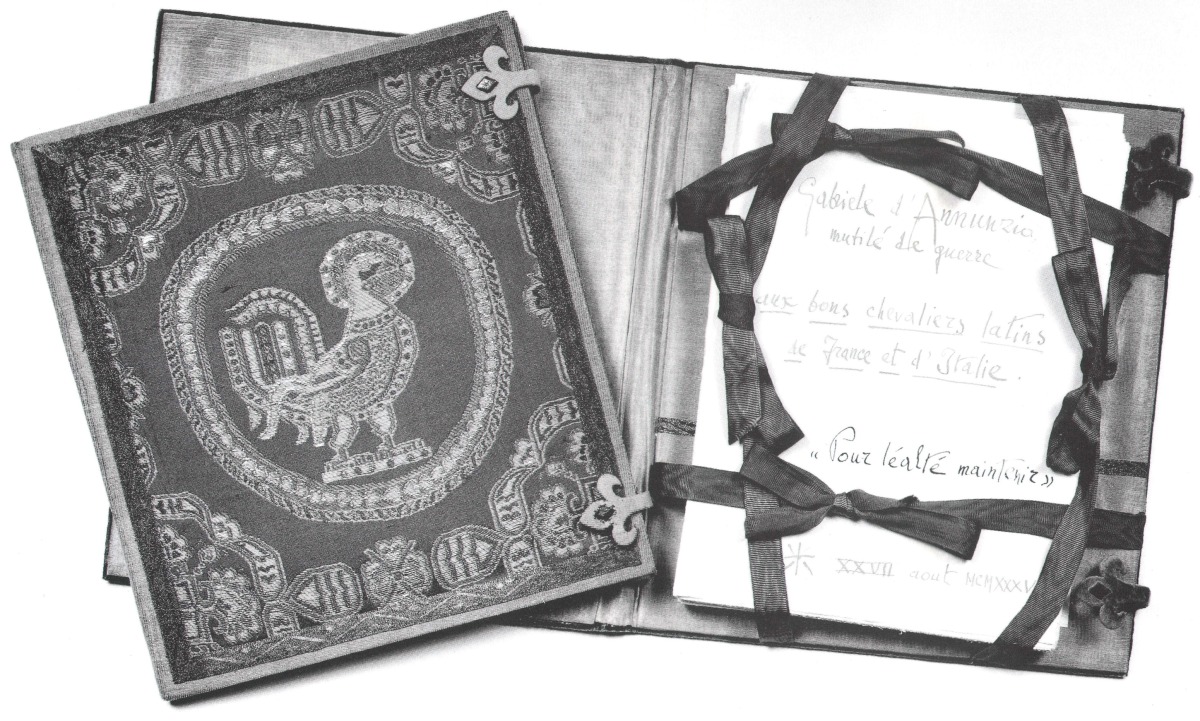 Gabriele d'Annunzio
mutilé de guerre
aux bons chevaliers latins
de France et d'Italie.
« Pour léalté maintenir »
XXVII aout MCMXXXV